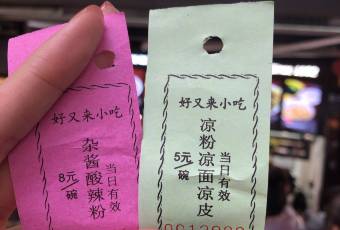 好又来小吃
杂酱酸辣粉
8元/碗
当日有效
好又来小吃
凉粉凉面凉皮
5元/碗
当日有效